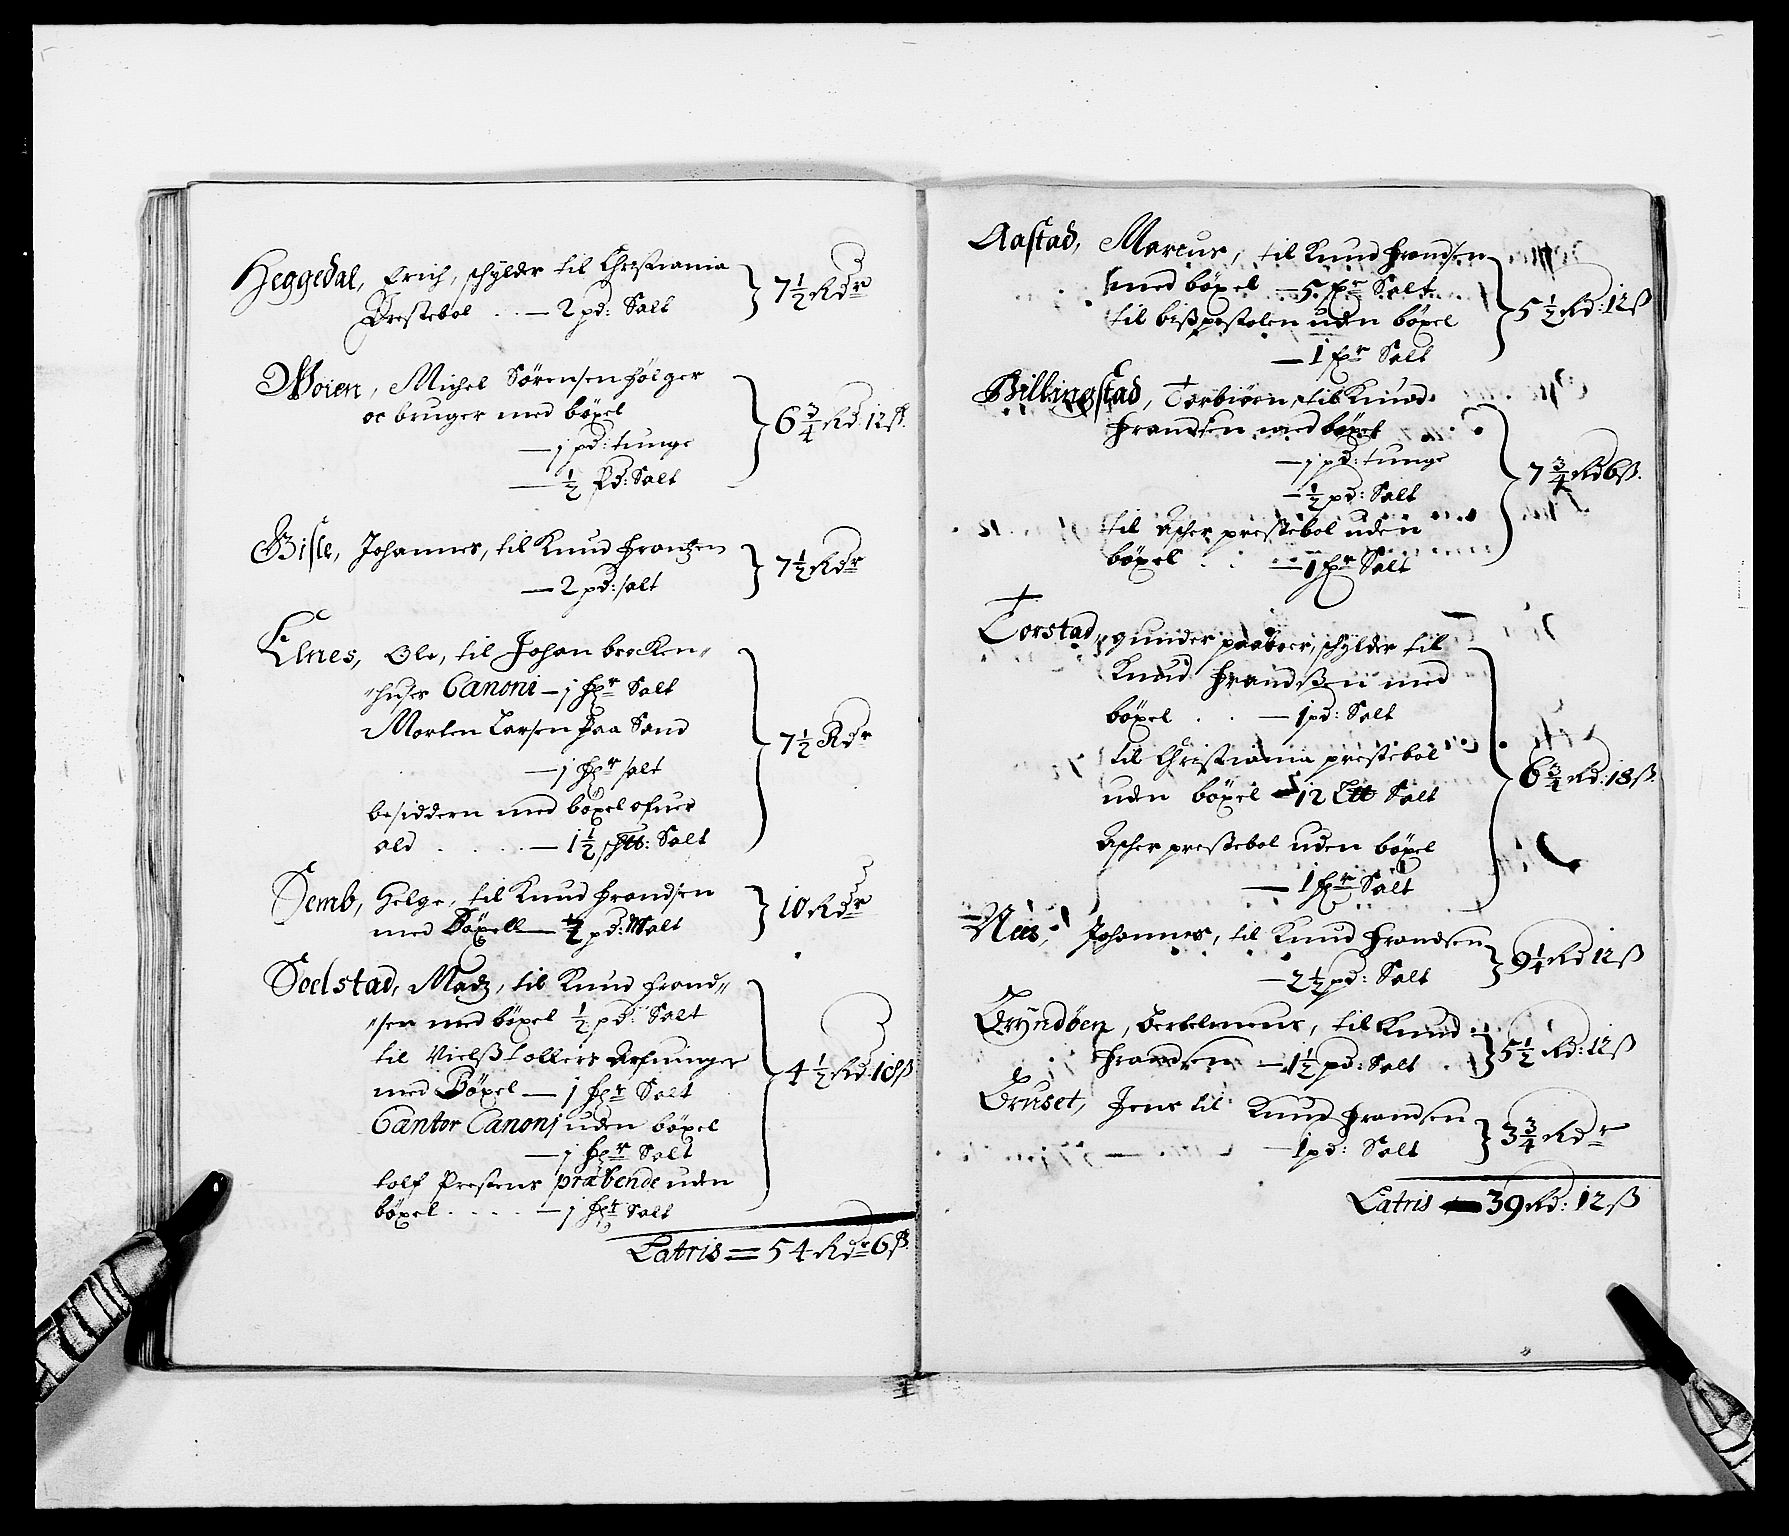 Heggedal, Erich, schylder til Christiania
Prestebol . . — 2 pd: Salt } 7½ Rdr
Moien, Michel Sørensen følger
oc bruger med böxel
— j pd: tunge
— ½ Pd: Salt } 6¾ Rd: 12ß.
Gisle, Johannes, til Knud Frantzen
— 2 pd: salt } 7½ Rdr
Elnes, Ole, til Johan brocken„
„huses Canoni — j fxr Salt
Morten Larsen paa Sand
— j fxr salt
besiddern med böxel ofuer
ald . . . . — 1½ sktt: Salt } 7½ Rdr
Semb, Helge, til Knud Frandsen
med Böxell — pd: Malt } 10 Rdr
Soelstad, Madz, til Knud Frand„
„sen med böxel ½ pd: Salt
til Nielß tollers Arfuinger
med Böxel — j fxr Salt
Cantor Canonj uden böxel
— j fxr Salt
tolf Prestens præbende uden
böxel . . . . — j fxr Salt } 4½ Rd: 18ß
Latris = 54 Rdr 6ß.
Aastad, Marcus, til Knud Frandsen
med böxel — 5 fxr Salt
til bißpestolen uden böxel
— 1 fxr Salt } 5½ Rd: 12ß
Billingstad, Torbiørn, til Knud
Frandsen med böxel
— j pd: tunge
— ½ pd: Salt
til Asker prestebol uden
böxel . . — 1 fxr Salt } 7¾ Rd 6ß.
Torstad, gunder paaboer, schylder til
Knud Frandßen med
böxel . . — 1 pd: Salt
til Christiania prestebol
uden böxel — 12 Ltt Salt
Asker prestebol uden böxel
— 1 fxr Salt } 6¾ Rd: 18ß
Nees, Johannes, til Knud Frandsen
— 2½ pd: Salt } 9¼ Rd 12ß
Gryndöen, Bertelmeus, til Knud
Frandsen — 1½ pd: Salt } 5½ Rd: 12ß
Gruset, Jens til Knud Frandsen
— 1 pd: Salt } 3¾ Rdr
Latris — 39 Rd: 12ß